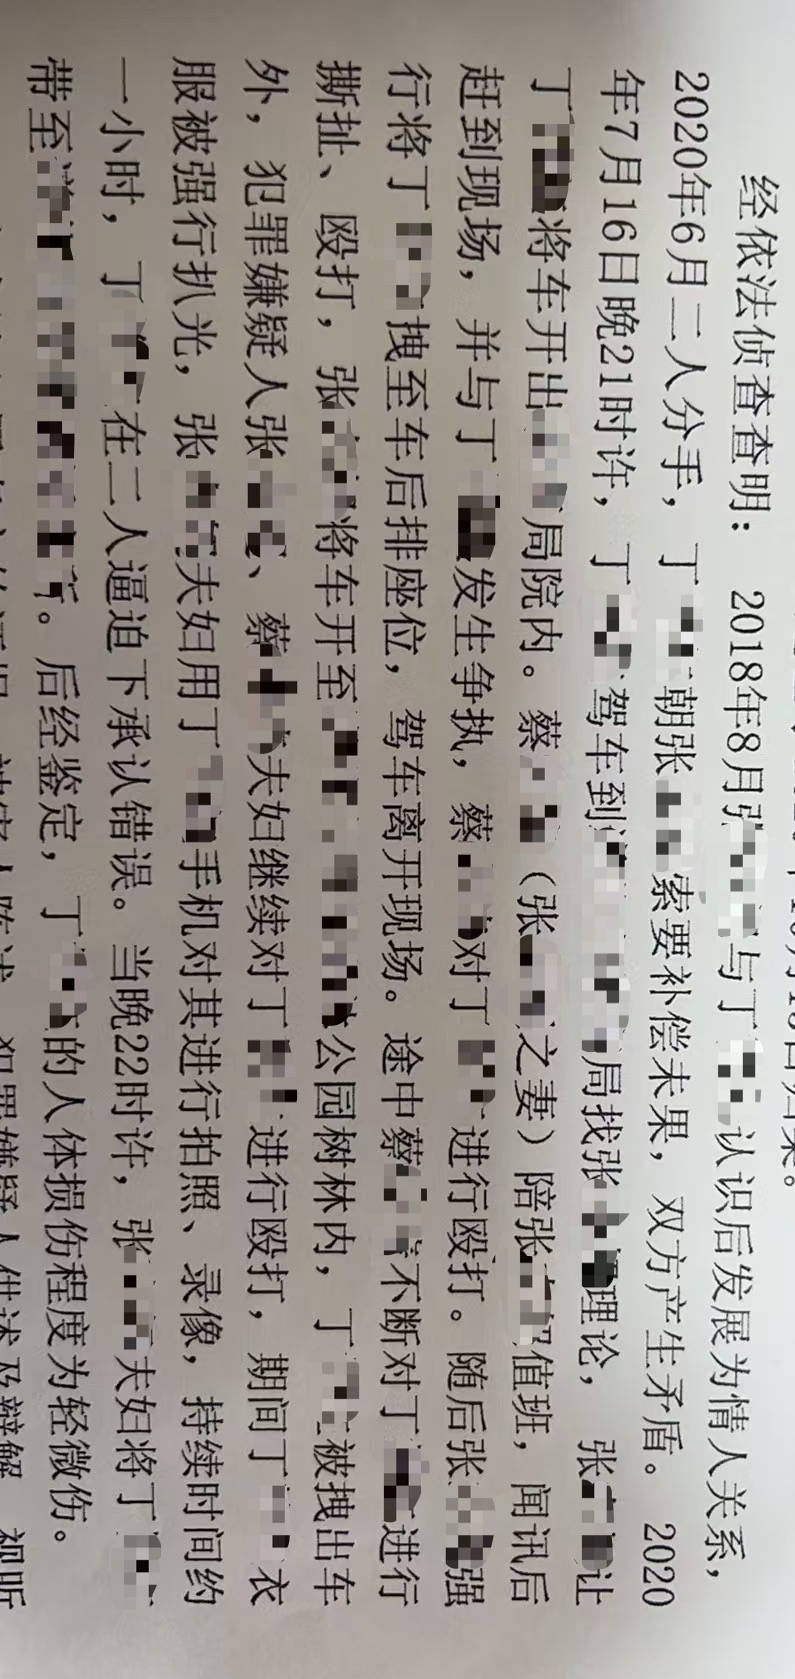 归案。
经依法侦查查明： 2018年8月张与丁认识后发展为情人关系，
2020年6月二人分手，丁朝张索要补偿未果，双方产生矛盾。2020
年7月16日晚21时许，丁驾车到局找张理论，张让
丁将车开出局院内。蔡（张之妻）陪张值班，闻讯后
赶到现场，并与丁发生争执，蔡对丁进行殴打。随后张强
行将丁拽至车后排座位，驾车离开现场。途中蔡不断对丁进行
撕扯、殴打，张将车开至公园树林内，丁被拽出车
外，犯罪嫌疑人张、蔡夫妇继续对丁进行殴打，期间丁衣
服被强行扒光，张夫妇用丁手机对其进行拍照、录像，持续时间约
一小时，丁在二人逼迫下承认错误。当晚22时许，张夫妇将丁
带至。后经鉴定，丁的人体损伤程度为轻微伤。
被害人陈述、犯罪嫌疑人供述及辩解、视听